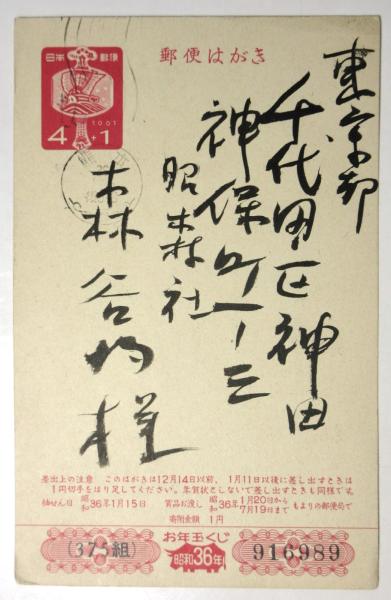 郵便はがき
日本郵便
1961
4+1
東京都
千代田区神田
神保町一ノ三
昭森社
森谷均様
差出上の注意 このはがきは12月14日以前、1月11日以後に差し出すときは
1円切手をはり足してください。年賀状としないで差し出すときも同様です。
抽せん日 昭和36年1月15日 賞品お渡し 昭和36年1月20日から7月19日まで もよりの郵便局で
寄附金額 1円
お年玉くじ
(375組) 昭和36年 916989